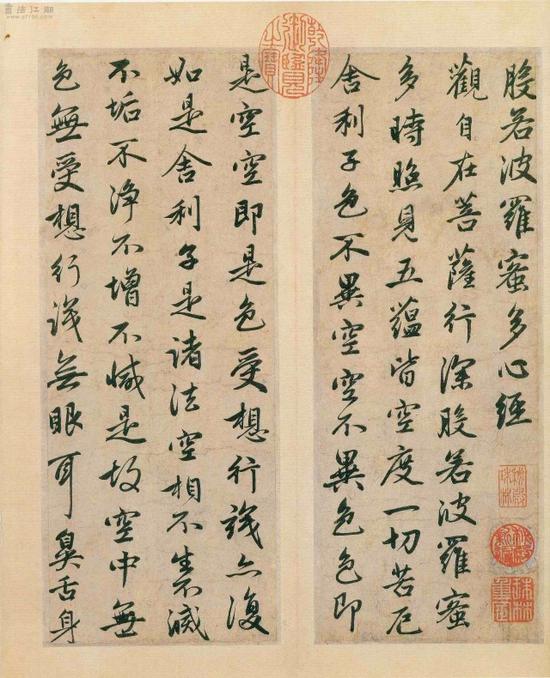 般若波羅蜜多心經
觀自在菩薩行深般若波羅蜜
多時照見五蘊皆空度一切苦厄
舍利子色不異空空不異色色即
是空空即是色受想行識亦復
如是舍利子是諸法空相不生不滅
不垢不净不增不減是故空中無
色無受想行識无眼耳鼻舌身
乾隆御覽之寶
秘殿珠林
秘殿新編
珠林重定